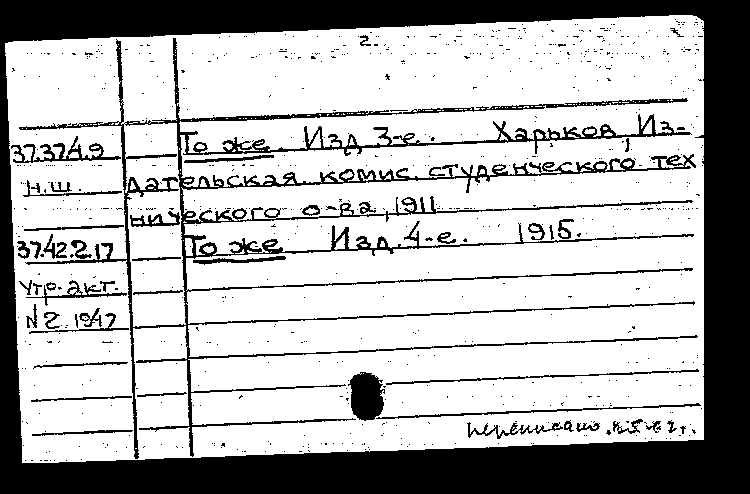 2.
37.374.9 То же Изд. 3-е. Харьков, Из-
н.ш. дательская комис. студенческого тех
нического о-ва, 1911
37.42.2.17 То же Изд. 4-е. 1915.
Утр. акт.
N2 1947
переписано